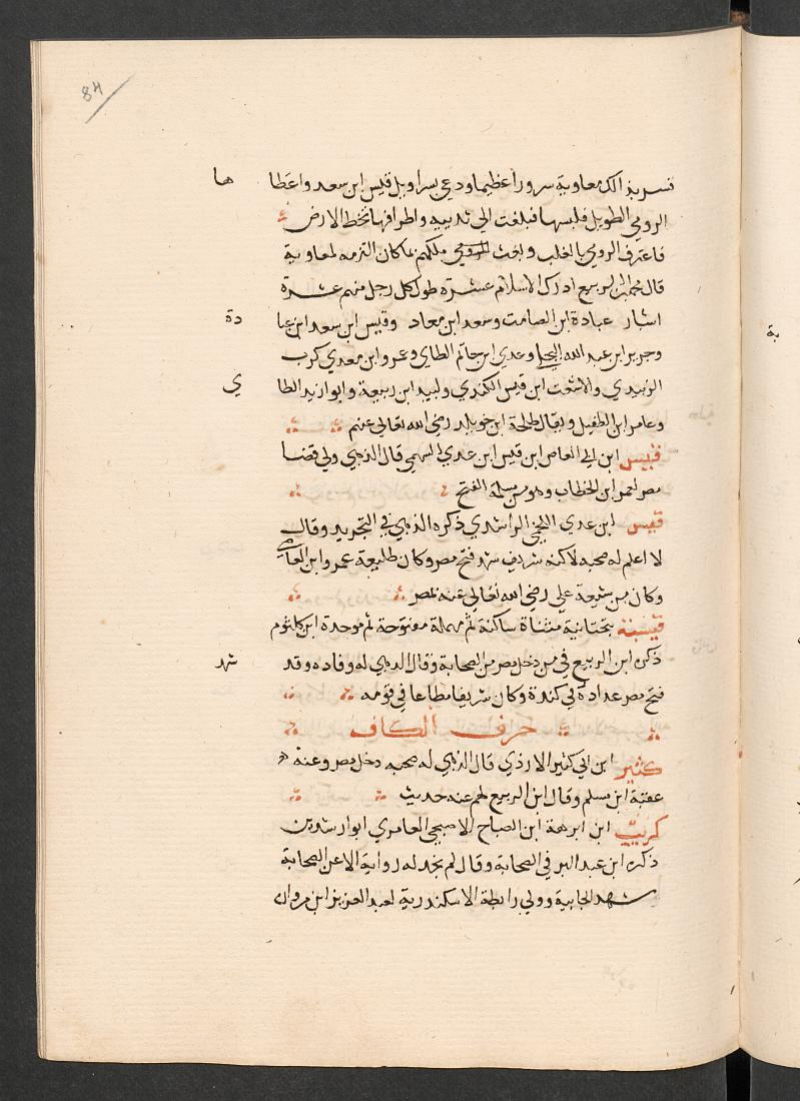 84
فسر بذالك معاوية سرورا عظيما ودعي بسراويل قيس ابن سعد واعطا ها
الرومي الطويل فلبسها فبلغت الي ثدييه واطرافها تخط الارض
فاعترف الرومي بالغلب وبعث ملكهم ما كان التزمه لمعاوية
قال محمد ابن الربيع ادرك الاسلام عشرة طول كل رجل منهم عشرة
اشبار عبادة ابن الصامت وسعد ابن معاد وقيس ابن سعد ابن عبا دة
وجرير ابن عبد الله البجلي وعدي ابن حاتم الطاي وعمرو ابن معدي كرب
الزبيدي والاشعت ابن قيس الكندي ولبيد ابن ربيعة وابوا زيد الطا ي
وعامر ابن الطفيل ويقال طلحة ابن خويلد رضي الله تعالي عنهم
قيس ابن ابي العاص ابن قيس ابن عدي السهمي قال الذهبي ولي قضا
مصر لعمر ابن الخطاب وهو من مسلمة الفتح
قيس ابن عدي اللخمي الراشدي ذكره الذهبي في التجريد وقال
لا اعلم له صحبه لاكنه شريف شهد فتح مصر وكان طليعة عمرو ابن العاصي
وكان من شيعة علي رضي الله تعالي عنه بمصر
قيسبة بتحتانية مثناة ساكنة ثم مهملة مفتوحة ثم موحدة ابن كلثوم
ذكره ابن الربيع في من دخل مصر من الصحابة وقال الذهبي له وفاده وقد شهد
فتح مصر عداده في كندة وكان شريفا مطاعا في قومه
حرف الكاف
كثير ابن ابي كثير الازدي قال الذهبي له صحبه دخل مصر وعنه
عقبة ابن مسلم وقال ابن الربيع لهم عنه حديث
كريب ابن ابرهة ابن الصباح الاصبحي العامري ابوا رشدين
ذكره ابن عبد البر في الصحابة وقال لم يجد له رواية الا عن الصحابة
شهد الجابية وولي رابطة الاسكندرية لعبد العزيز ابن مروان